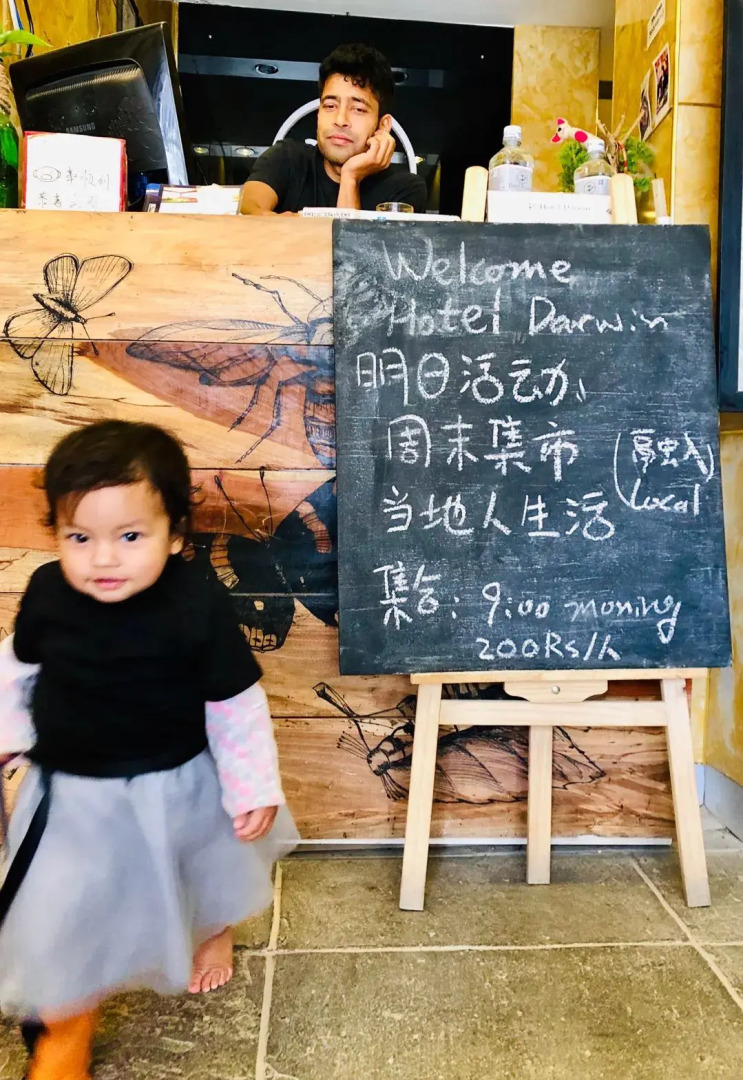 SAMSUNG
Welcome
Hotel Darwin
明日活动
周末集市 (融入
当地人生活 Local)
集合: 9:00 morning
200Rs/人